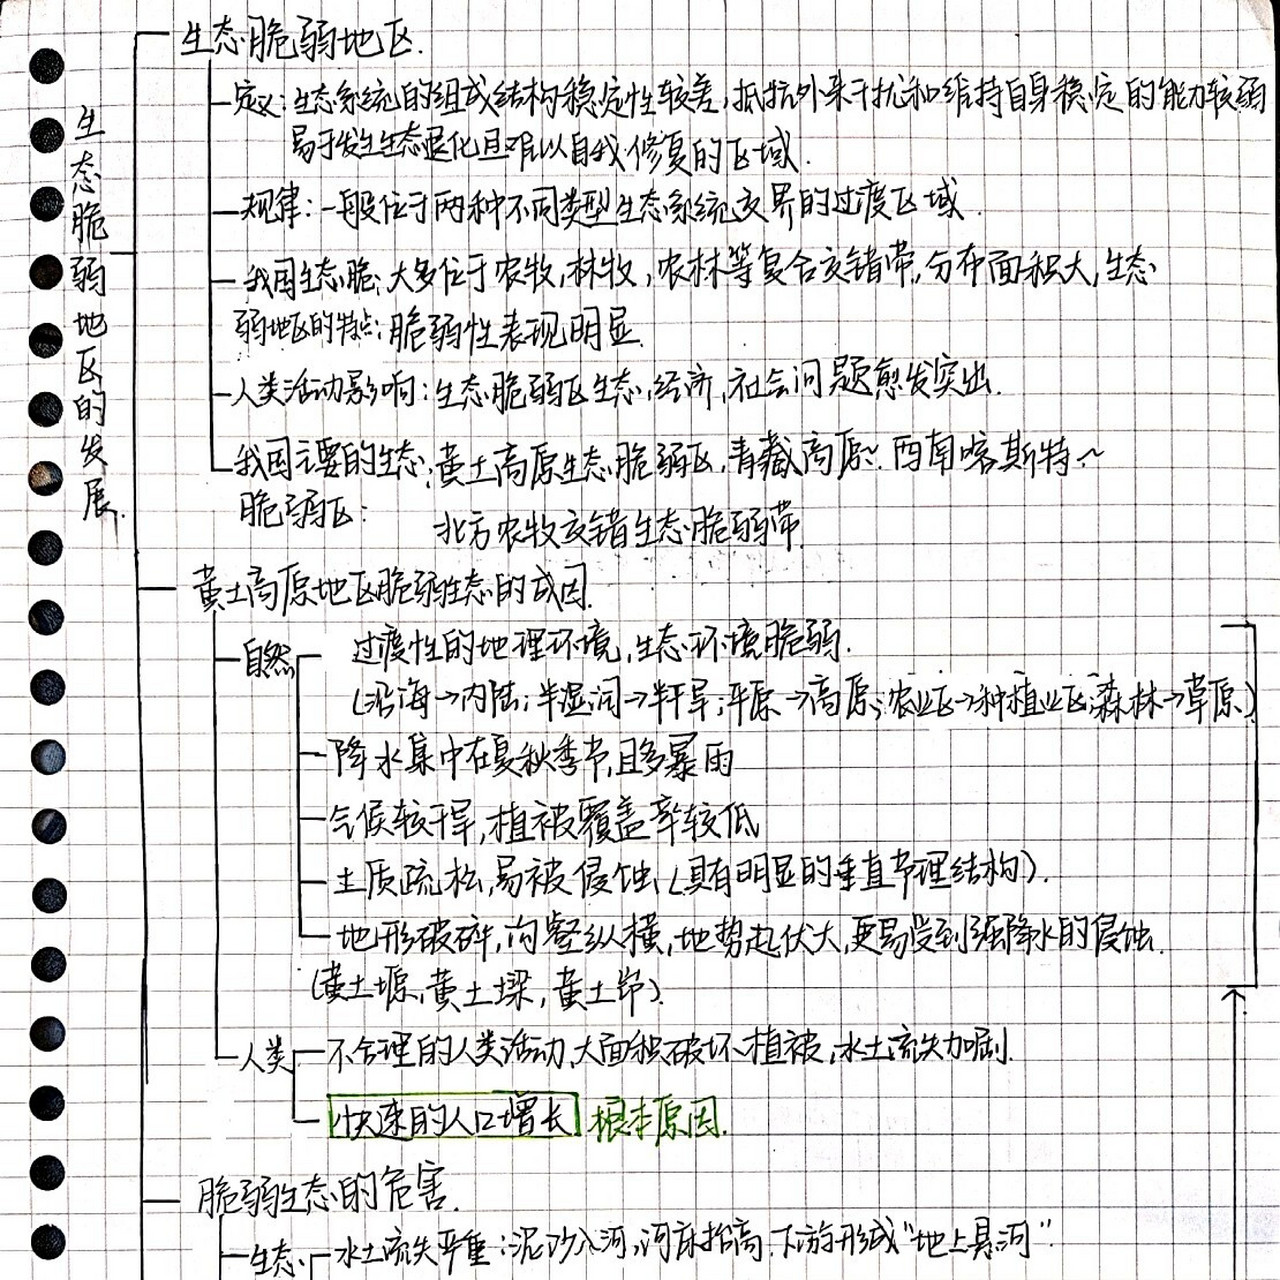 生态脆弱地区的发展.
生态脆弱地区.
定义:生态系统的组成结构稳定性较差,抵抗外来干扰和维持自身稳定的能力较弱
易于发生生态退化且难以自我修复的区域.
规律:一般位于两种不同类型生态系统交界的过渡区域.
我国生态脆:大多位于农牧,林牧,农林等复合交错带,分布面积大,生态
弱地区的特点:脆弱性表现明显.
人类活动影响:生态脆弱区生态,经济,社会问题愈发突出.
我国主要的生态:黄土高原生态脆弱区,青藏高原~.西南喀斯特~
脆弱区: 北方农牧交错生态脆弱带.
黄土高原地区脆弱生态的成因.
自然 过渡性的地理环境,生态环境脆弱.
(沿海→内陆;半湿润→半干旱;平原→高原;农业区→种植业区;森林→草原)
降水集中在夏秋季节,且多暴雨
气候较干旱,植被覆盖率较低
土质疏松,易被侵蚀,(具有明显的垂直节理结构).
地形破碎,沟壑纵横,地势起伏大,更易受到强降水的侵蚀.
(黄土塬,黄土墚,黄土峁).
人类 不合理的人类活动,大面积破坏植被,水土流失加剧.
快速的人口增长 根本原因.
脆弱生态的危害.
生态 水土流失严重:泥沙入河,河床抬高,下游形成“地上悬河”